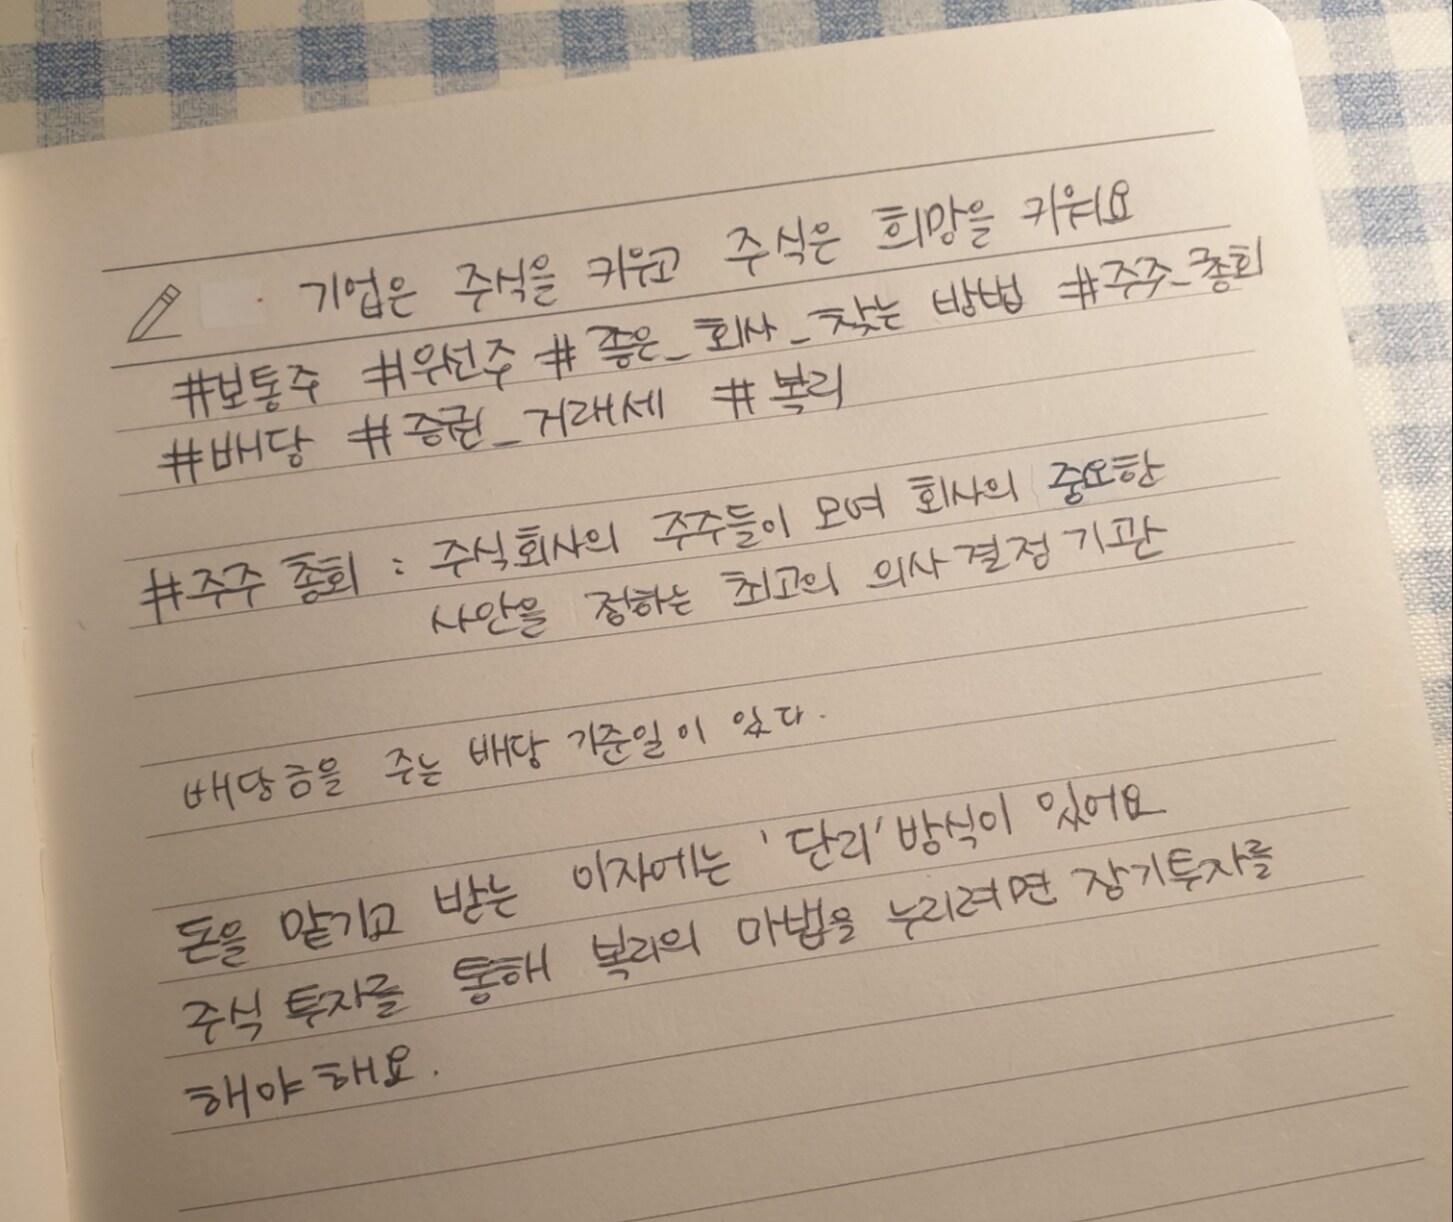 기업은 주식을 키우고 주식은 희망을 키워요
#보통주 #우선주 # 좋은_ 회사_ 찾는 방법 #주주_총회
#배당 #증권_거래세 #복리
#주주 총회 : 주식회사의 주주들이 모여 회사의 중요한
사안을 정하는 최고의 의사결정기관
배당금을 주는 배당 기준일이 있다.
돈을 맡기고 받는 이자에는 '단리' 방식이 있어요
주식 투자를 통해 복리의 마법을 누리려면 장기투자를
해야해요.